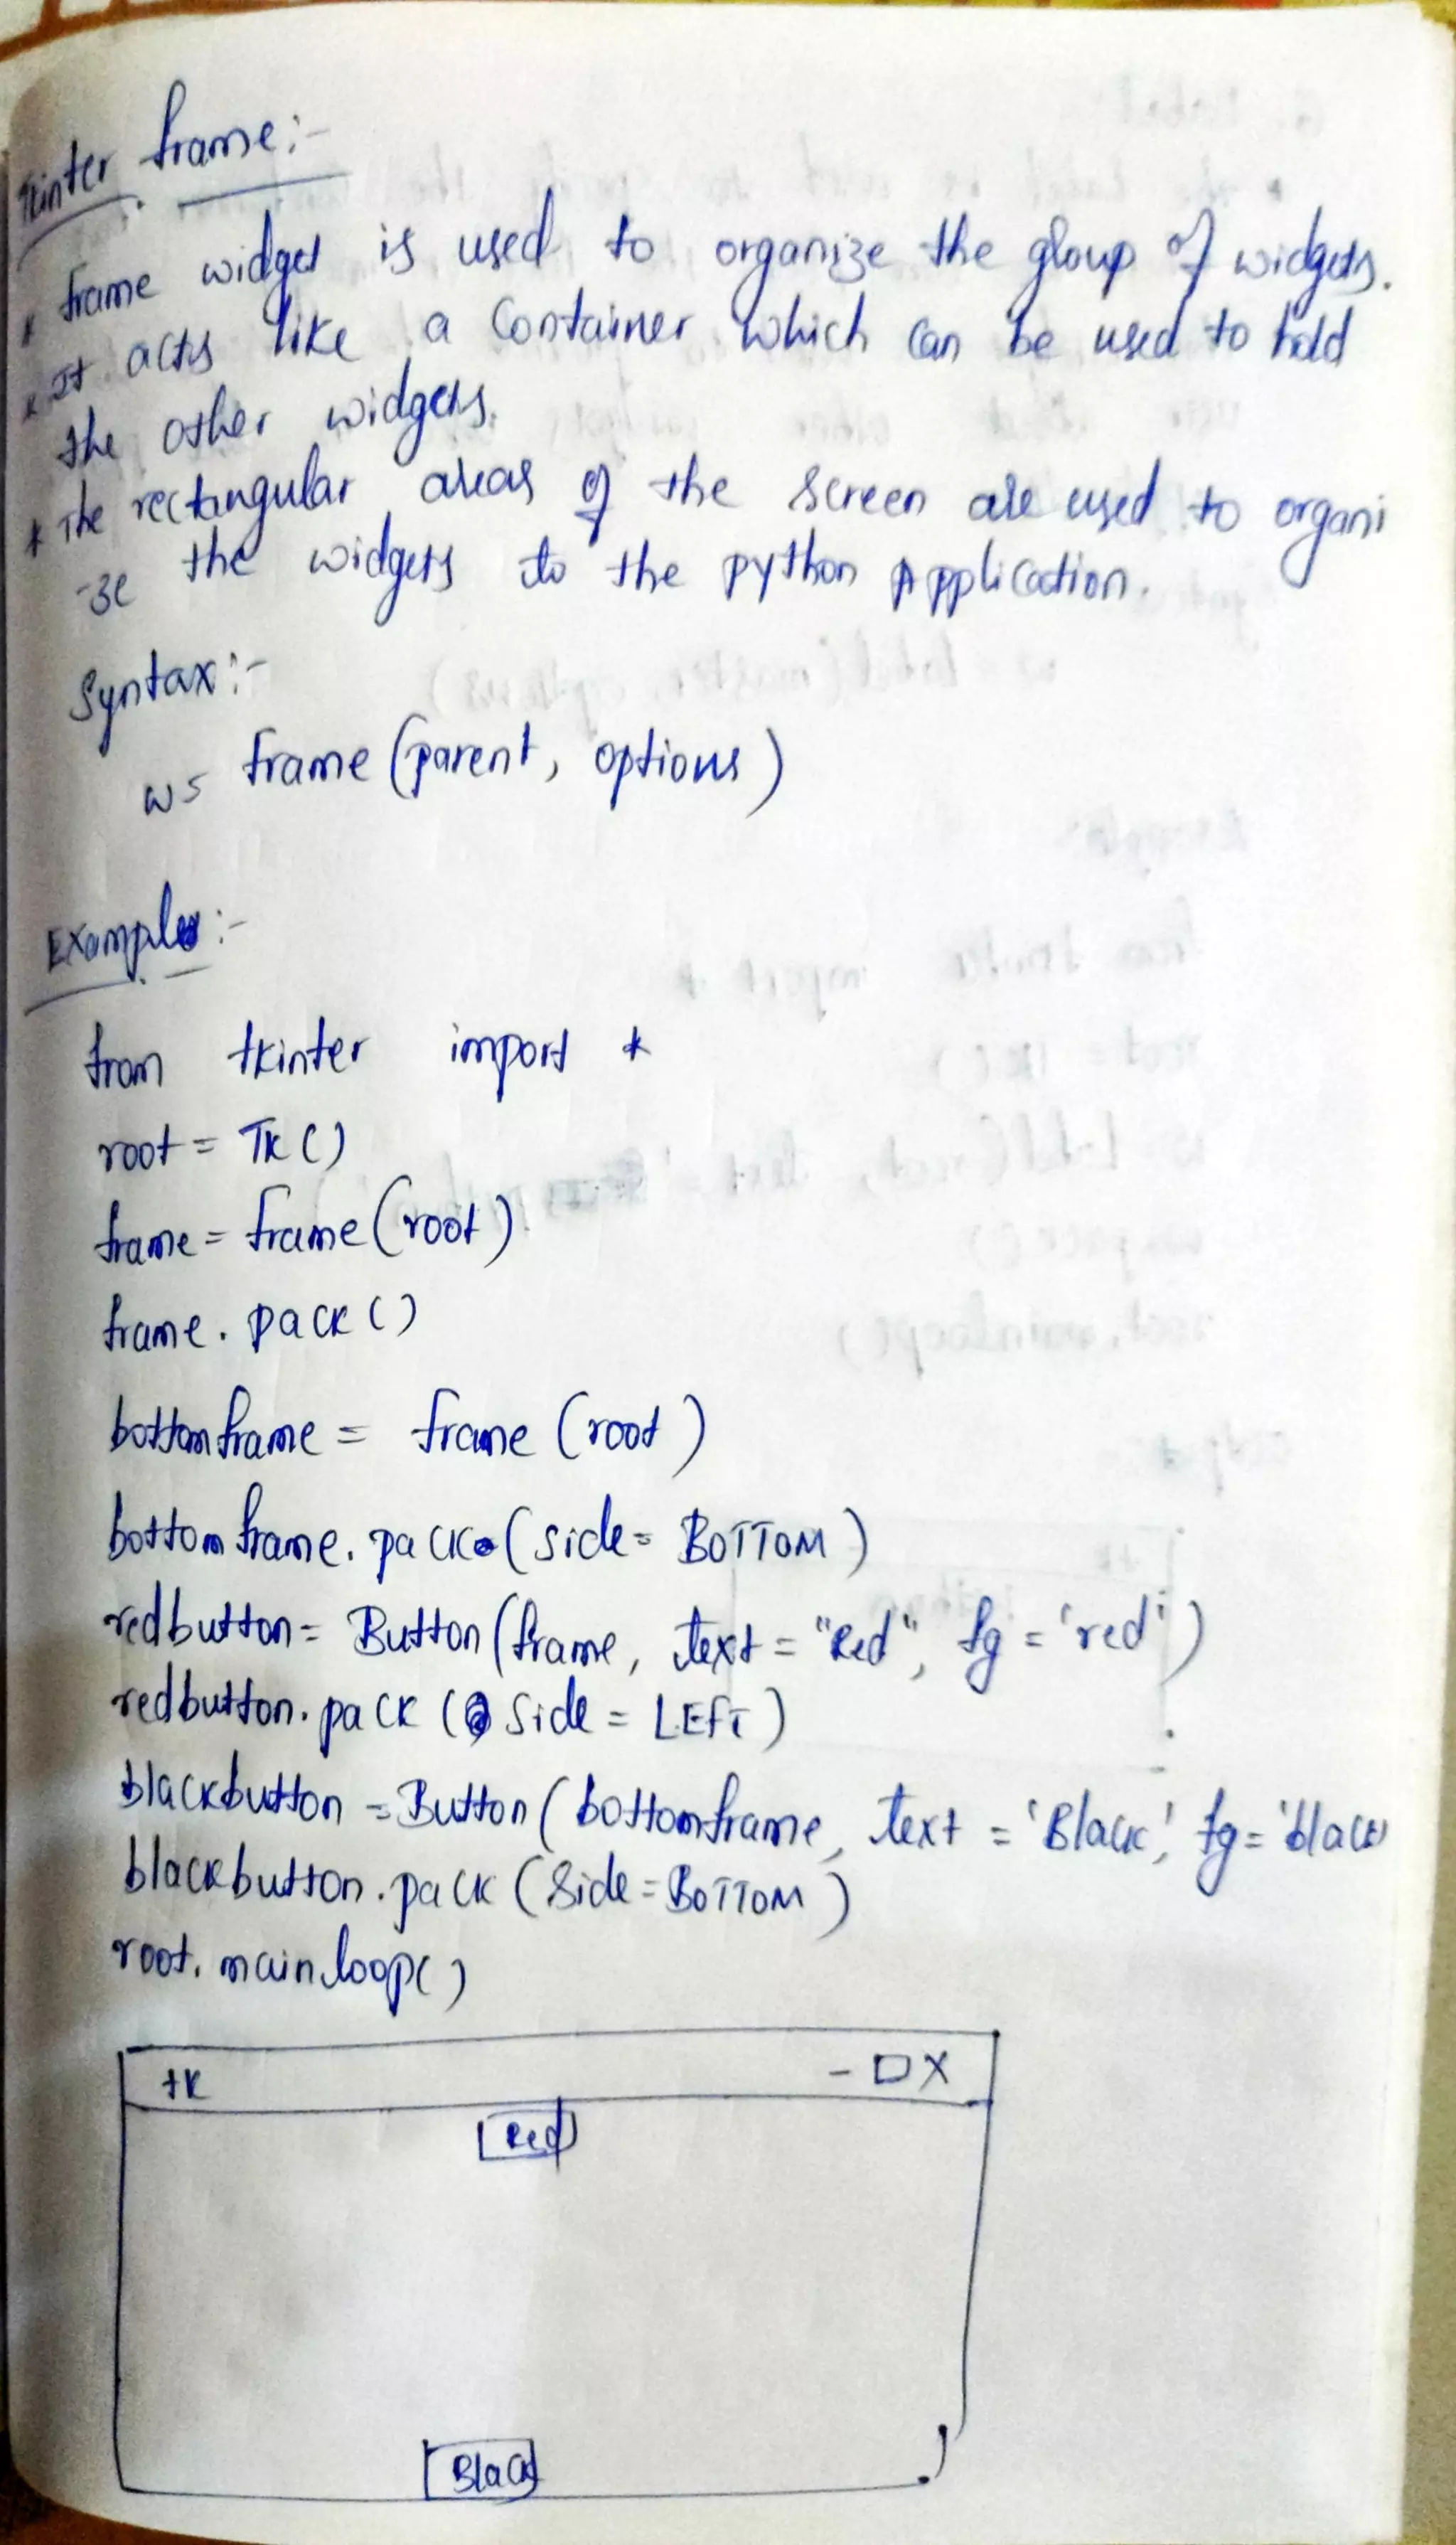 Tkinter frame:-
* frame widget is used to organize the group of widgets.
* It acts like a Container which can be used to hold
the other widgets.
* The rectangular areas of the screen are used to organi
-ze the widgets to the python Application.
Syntax:-
w= frame (parent, options)
Example:-
from tkinter import *
root = Tk()
frame = frame (root)
frame. pack()
bottomframe = frame (root)
bottomframe. pack (side= BOTTOM)
redbutton= Button (frame, text = "Red", fg = 'red')
redbutton. pack ( side = LEFT)
blackbutton = Button ( bottomframe, text = 'Black', fg= 'black
blackbutton .pack (side = BOTTOM)
root. mainloop()
tk - □ X
Red
Black